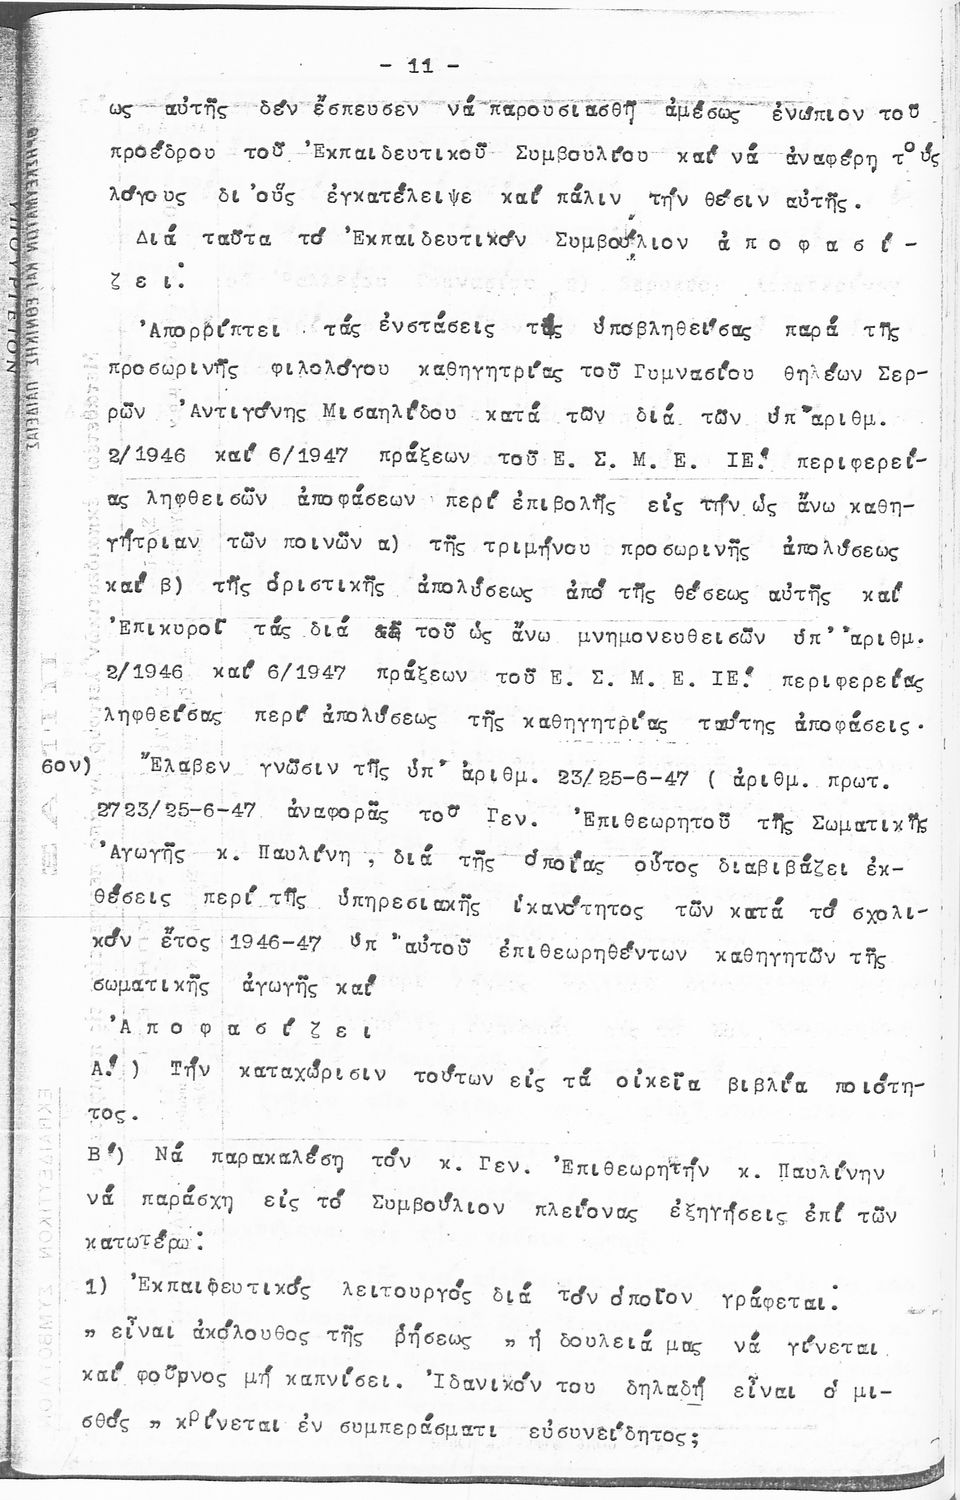 - 11 -
ως αὐτῆς δέν ἔσπευσεν νά παρουσιασθῇ ἀμέσως ἐνώπιον τοῦ
προέδρου τοῦ Ἐκπαιδευτικοῦ Συμβουλίου καί νά ἀναφέρῃ τούς
λόγους δι 'οὕς ἐγκατέλειψε καί πάλιν τήν θέσιν αὐτῆς.
Διά ταῦτα τό Ἐκπαιδευτικόν Συμβούλιον ἀ π ο φ α σ ί -
ζ ε ι:
Ἀπορρίπτει τάς ἐνστάσεις τάς ὑποβληθείσας παρά τῆς
προσωρινῆς φιλολόγου καθηγητρίας τοῦ Γυμνασίου θηλέων Σερ-
ρῶν Ἀντιγόνης Μισαηλίδου κατά τῶν διά τῶν ὑπ'ἀριθμ.
2/1946 καί 6/1947 πράξεων τοῦ Ε. Σ. Μ. Ε. ΙΕ.' περιφερεί-
ας ληφθεισῶν ἀποφάσεων περί ἐπιβολῆς εἰς τήν ὡς ἄνω καθη-
γήτριαν τῶν ποινῶν α) τῆς τριμήνου προσωρινῆς ἀπολύσεως
καί β) τῆς ὁριστικῆς ἀπολύσεως ἀπό τῆς θέσεως αὐτῆς καί
Ἐπικυροῖ τάς διά τοῦ ὡς ἄνω μνημονευθεισῶν ὑπ' ἀριθμ.
2/1946 καί 6/1947 πράξεων τοῦ Ε. Σ. Μ. Ε. ΙΕ.' περιφερείας
ληφθείσας περί ἀπολύσεως τῆς καθηγητρίας ταύτης ἀποφάσεις.
6ον) Ἔλαβεν γνῶσιν τῆς ὑπ' ἀριθμ. 23/25-6-47 ( ἀριθμ. πρωτ.
2723/25-6-47 ἀναφορᾶς τοῦ Γεν. Ἐπιθεωρητοῦ τῆς Σωματικῆς
Ἀγωγῆς κ. Παυλίνη , διά τῆς ὁποίας οὗτος διαβιβάζει ἐκ-
θέσεις περί τῆς ὑπηρεσιακῆς ἱκανότητος τῶν κατά τό σχολι-
κόν ἔτος 1946-47 ὑπ 'αὐτοῦ ἐπιθεωρηθέντων καθηγητῶν τῆς
σωματικῆς ἀγωγῆς καί
Ἀ π ο φ α σ ί ζ ε ι
Α.' ) Τήν καταχώρισιν τούτων εἰς τά οἰκεῖα βιβλία ποιότη-
τος.
Β') Νά παρακαλέσῃ τόν κ. Γεν. Ἐπιθεωρητήν κ. Παυλίνην
νά παράσχῃ εἰς τό Συμβούλιον πλείονας ἐξηγήσεις ἐπί τῶν
κατωτέρω:
1) Ἐκπαιδευτικός λειτουργός διά τόν ὁποῖον γράφεται:
" εἶναι ἀκόλουθος τῆς ῥήσεως " ἡ δουλειά μας νά γίνεται
καί φοῦρνος μή καπνίσει. Ἰδανικόν του δηλαδή εἶναι ὁ μι-
σθός " κρίνεται ἐν συμπεράσματι εὐσυνείδητος;